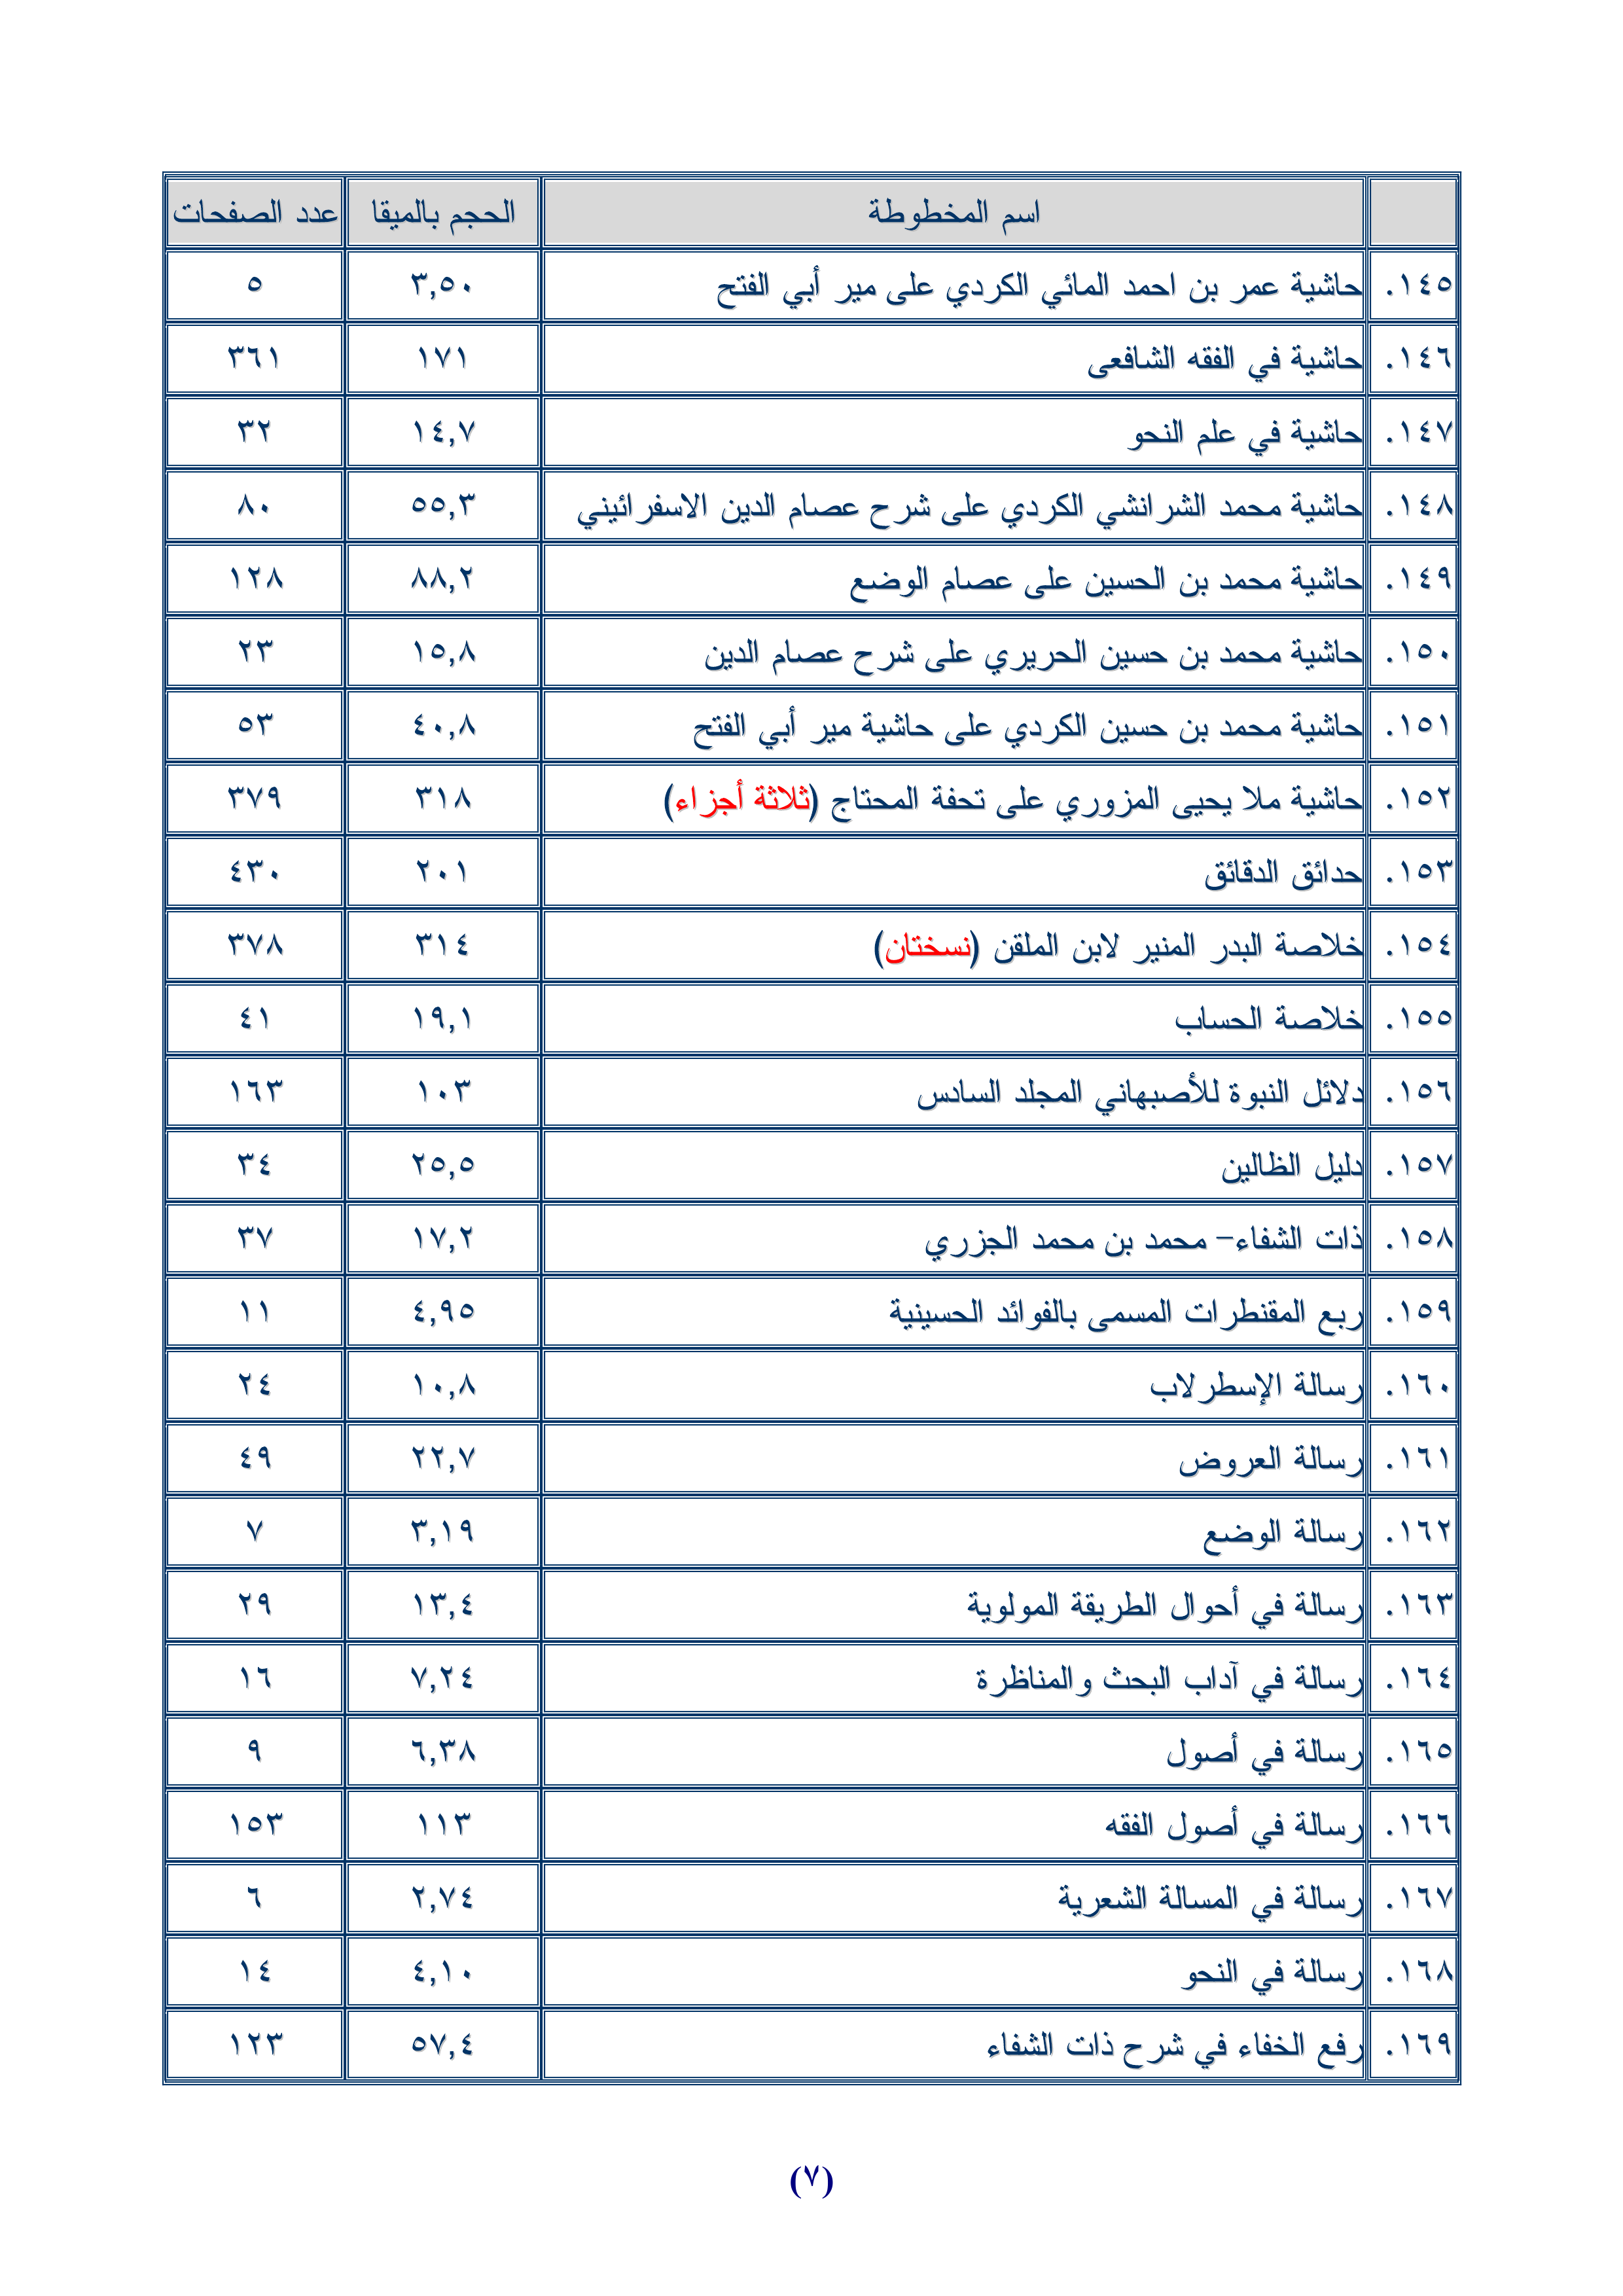 اسم المخطوطة الحجم بالميقا عدد الصفحات
١٤٥. حاشية عمر بن احمد المائي الكردي على مير أبي الفتح ٣,٥٠ ٥
١٤٦. حاشية في الفقه الشافعى ١٧١ ٣٦١
١٤٧. حاشية في علم النحو ١٤,٧ ٣٢
١٤٨. حاشية محمد الشرانشي الكردي على شرح عصام الدين الاسفرائيني ٥٥,٣ ٨٠
١٤٩. حاشية محمد بن الحسين على عصام الوضع ٨٨,٢ ١٢٨
١٥٠. حاشية محمد بن حسين الحريري على شرح عصام الدين ١٥,٨ ٢٣
١٥١. حاشية محمد بن حسين الكردي على حاشية مير أبي الفتح ٤٠,٨ ٥٣
١٥٢. حاشية ملا يحيى المزوري على تحفة المحتاج (ثلاثة أجزاء) ٣١٨ ٣٧٩
١٥٣. حدائق الدقائق ٢٠١ ٤٣٠
١٥٤. خلاصة البدر المنير لابن الملقن (نسختان) ٣١٤ ٣٧٨
١٥٥. خلاصة الحساب ١٩,١ ٤١
١٥٦. دلائل النبوة للأصبهاني المجلد السادس ١٠٣ ١٦٣
١٥٧. دليل الظالين ٢٥,٥ ٣٤
١٥٨. ذات الشفاء– محمد بن محمد الجزري ١٧,٢ ٣٧
١٥٩. ربع المقنطرات المسمى بالفوائد الحسينية ٤,٩٥ ١١
١٦٠. رسالة الإسطرلاب ١٠,٨ ٢٤
١٦١. رسالة العروض ٢٢,٧ ٤٩
١٦٢. رسالة الوضع ٣,١٩ ٧
١٦٣. رسالة في أحوال الطريقة المولوية ١٣,٤ ٢٩
١٦٤. رسالة في آداب البحث والمناظرة ٧,٢٤ ١٦
١٦٥. رسالة في أصول ٦,٣٨ ٩
١٦٦. رسالة في أصول الفقه ١١٣ ١٥٣
١٦٧. رسالة في المسالة الشعرية ٢,٧٤ ٦
١٦٨. رسالة في النحو ٤,١٠ ١٤
١٦٩. رفع الخفاء في شرح ذات الشفاء ٥٧,٤ ١٢٣
(٧)